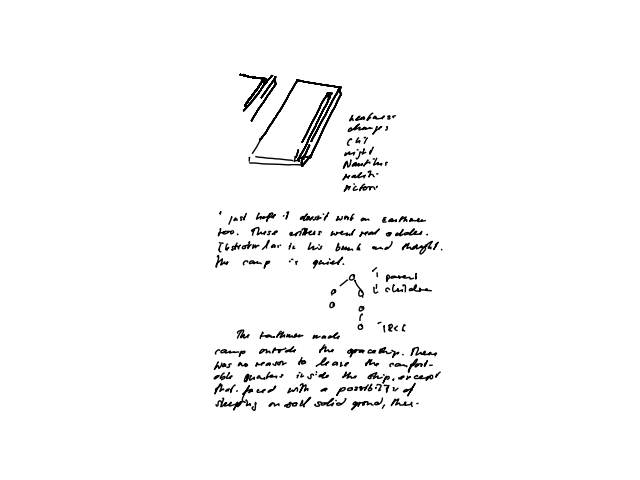 changes
might
Nautilus
realistic
picture
' just hope it doesn't work on Earthmen
too. These critters went real addled.
in his bunk and thought.
The camp is quiet.
1 parent
children
The Earthmen made
camp outside the spaceship. There
was no reason to leave the comfort-
able quarters inside the ship, except
that, faced with a possibility of
sleeping on solid ground, they